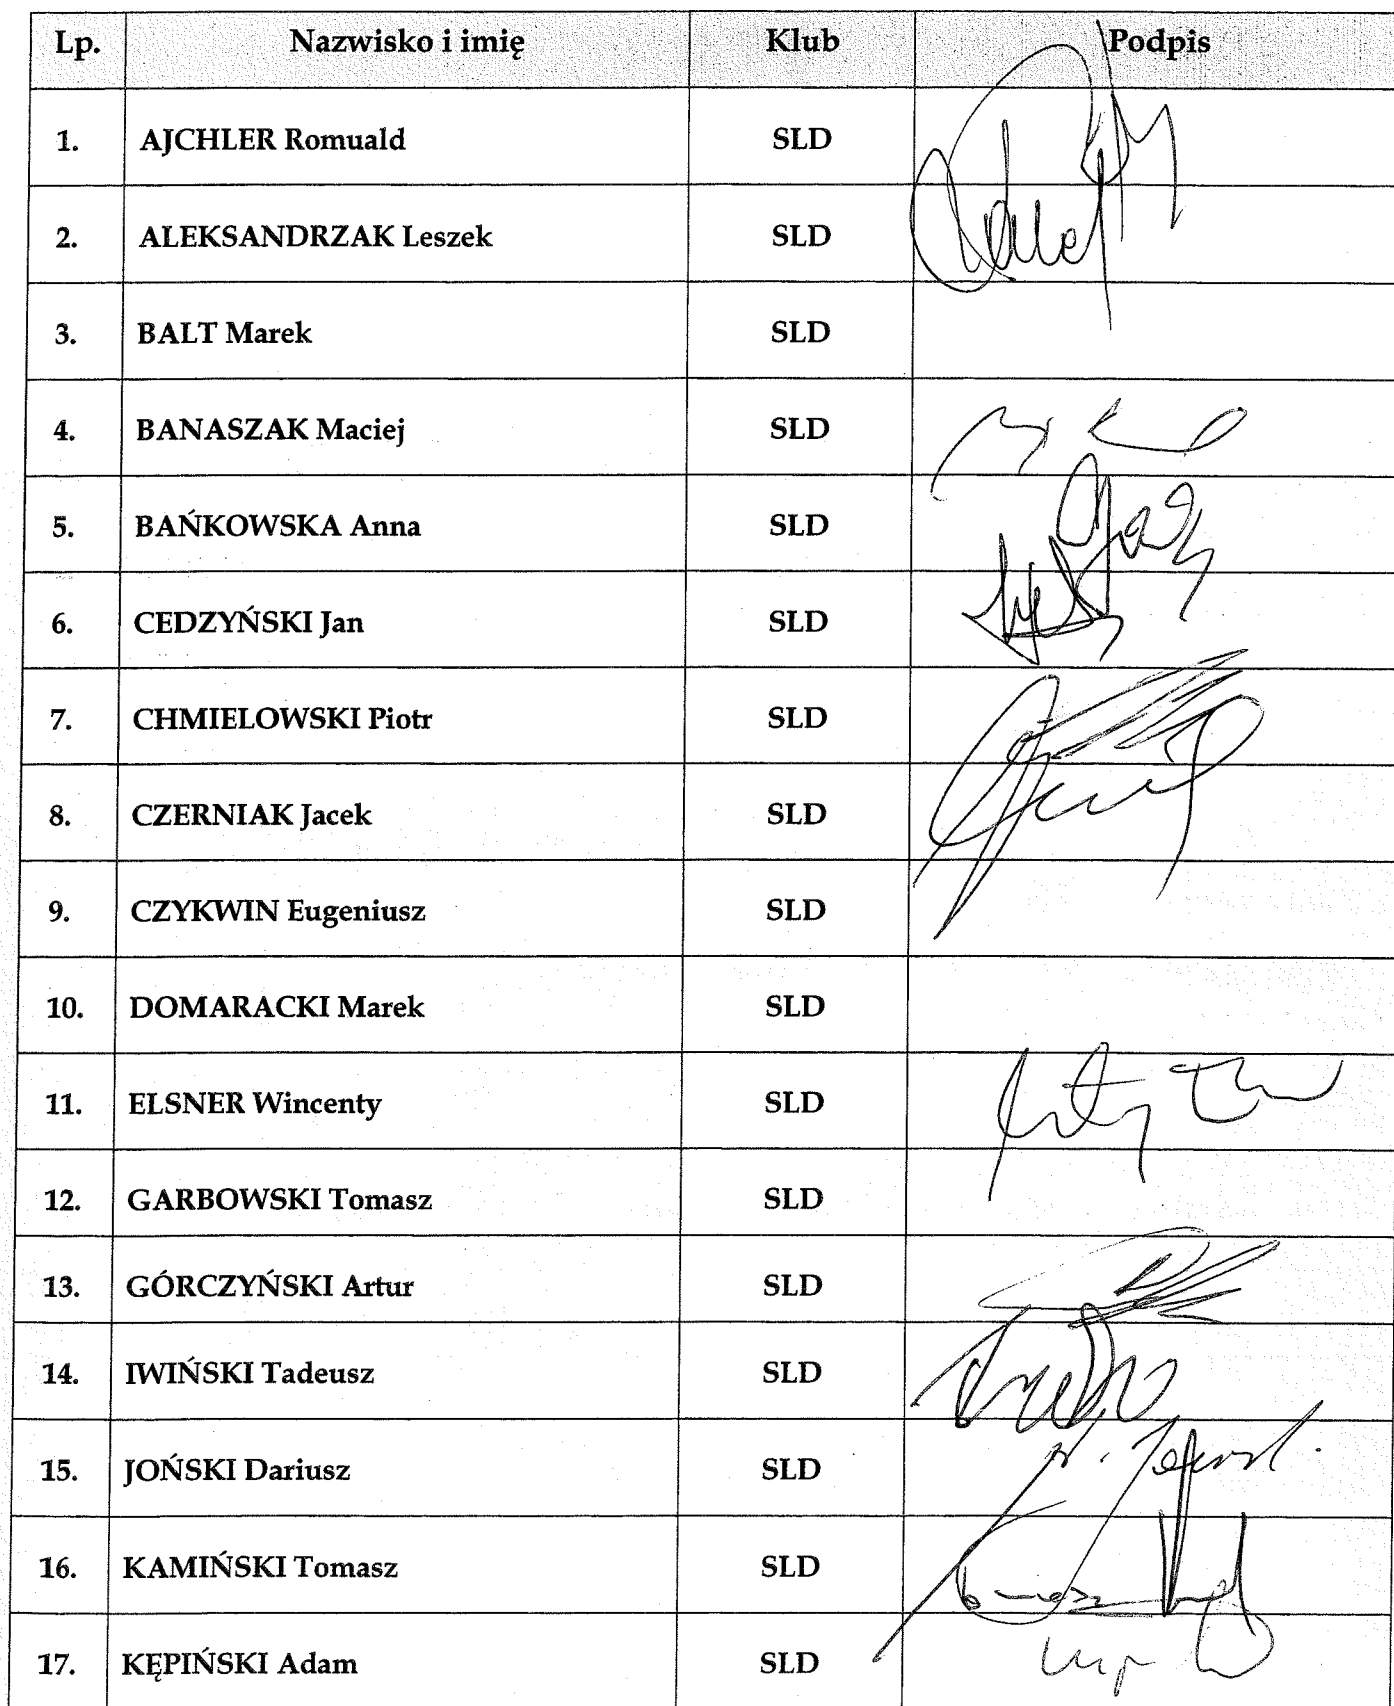 Lp. Nazwisko i imię Klub Podpis
1. AJCHLER Romuald SLD
2. ALEKSANDRZAK Leszek SLD
3. BALT Marek SLD
4. BANASZAK Maciej SLD
5. BAŃKOWSKA Anna SLD
6. CEDZYŃSKI Jan SLD
7. CHMIELOWSKI Piotr SLD
8. CZERNIAK Jacek SLD
9. CZYKWIN Eugeniusz SLD
10. DOMARACKI Marek SLD
11. ELSNER Wincenty SLD
12. GARBOWSKI Tomasz SLD
13. GÓRCZYŃSKI Artur SLD
14. IWIŃSKI Tadeusz SLD
15. JOŃSKI Dariusz SLD
16. KAMIŃSKI Tomasz SLD
17. KĘPIŃSKI Adam SLD